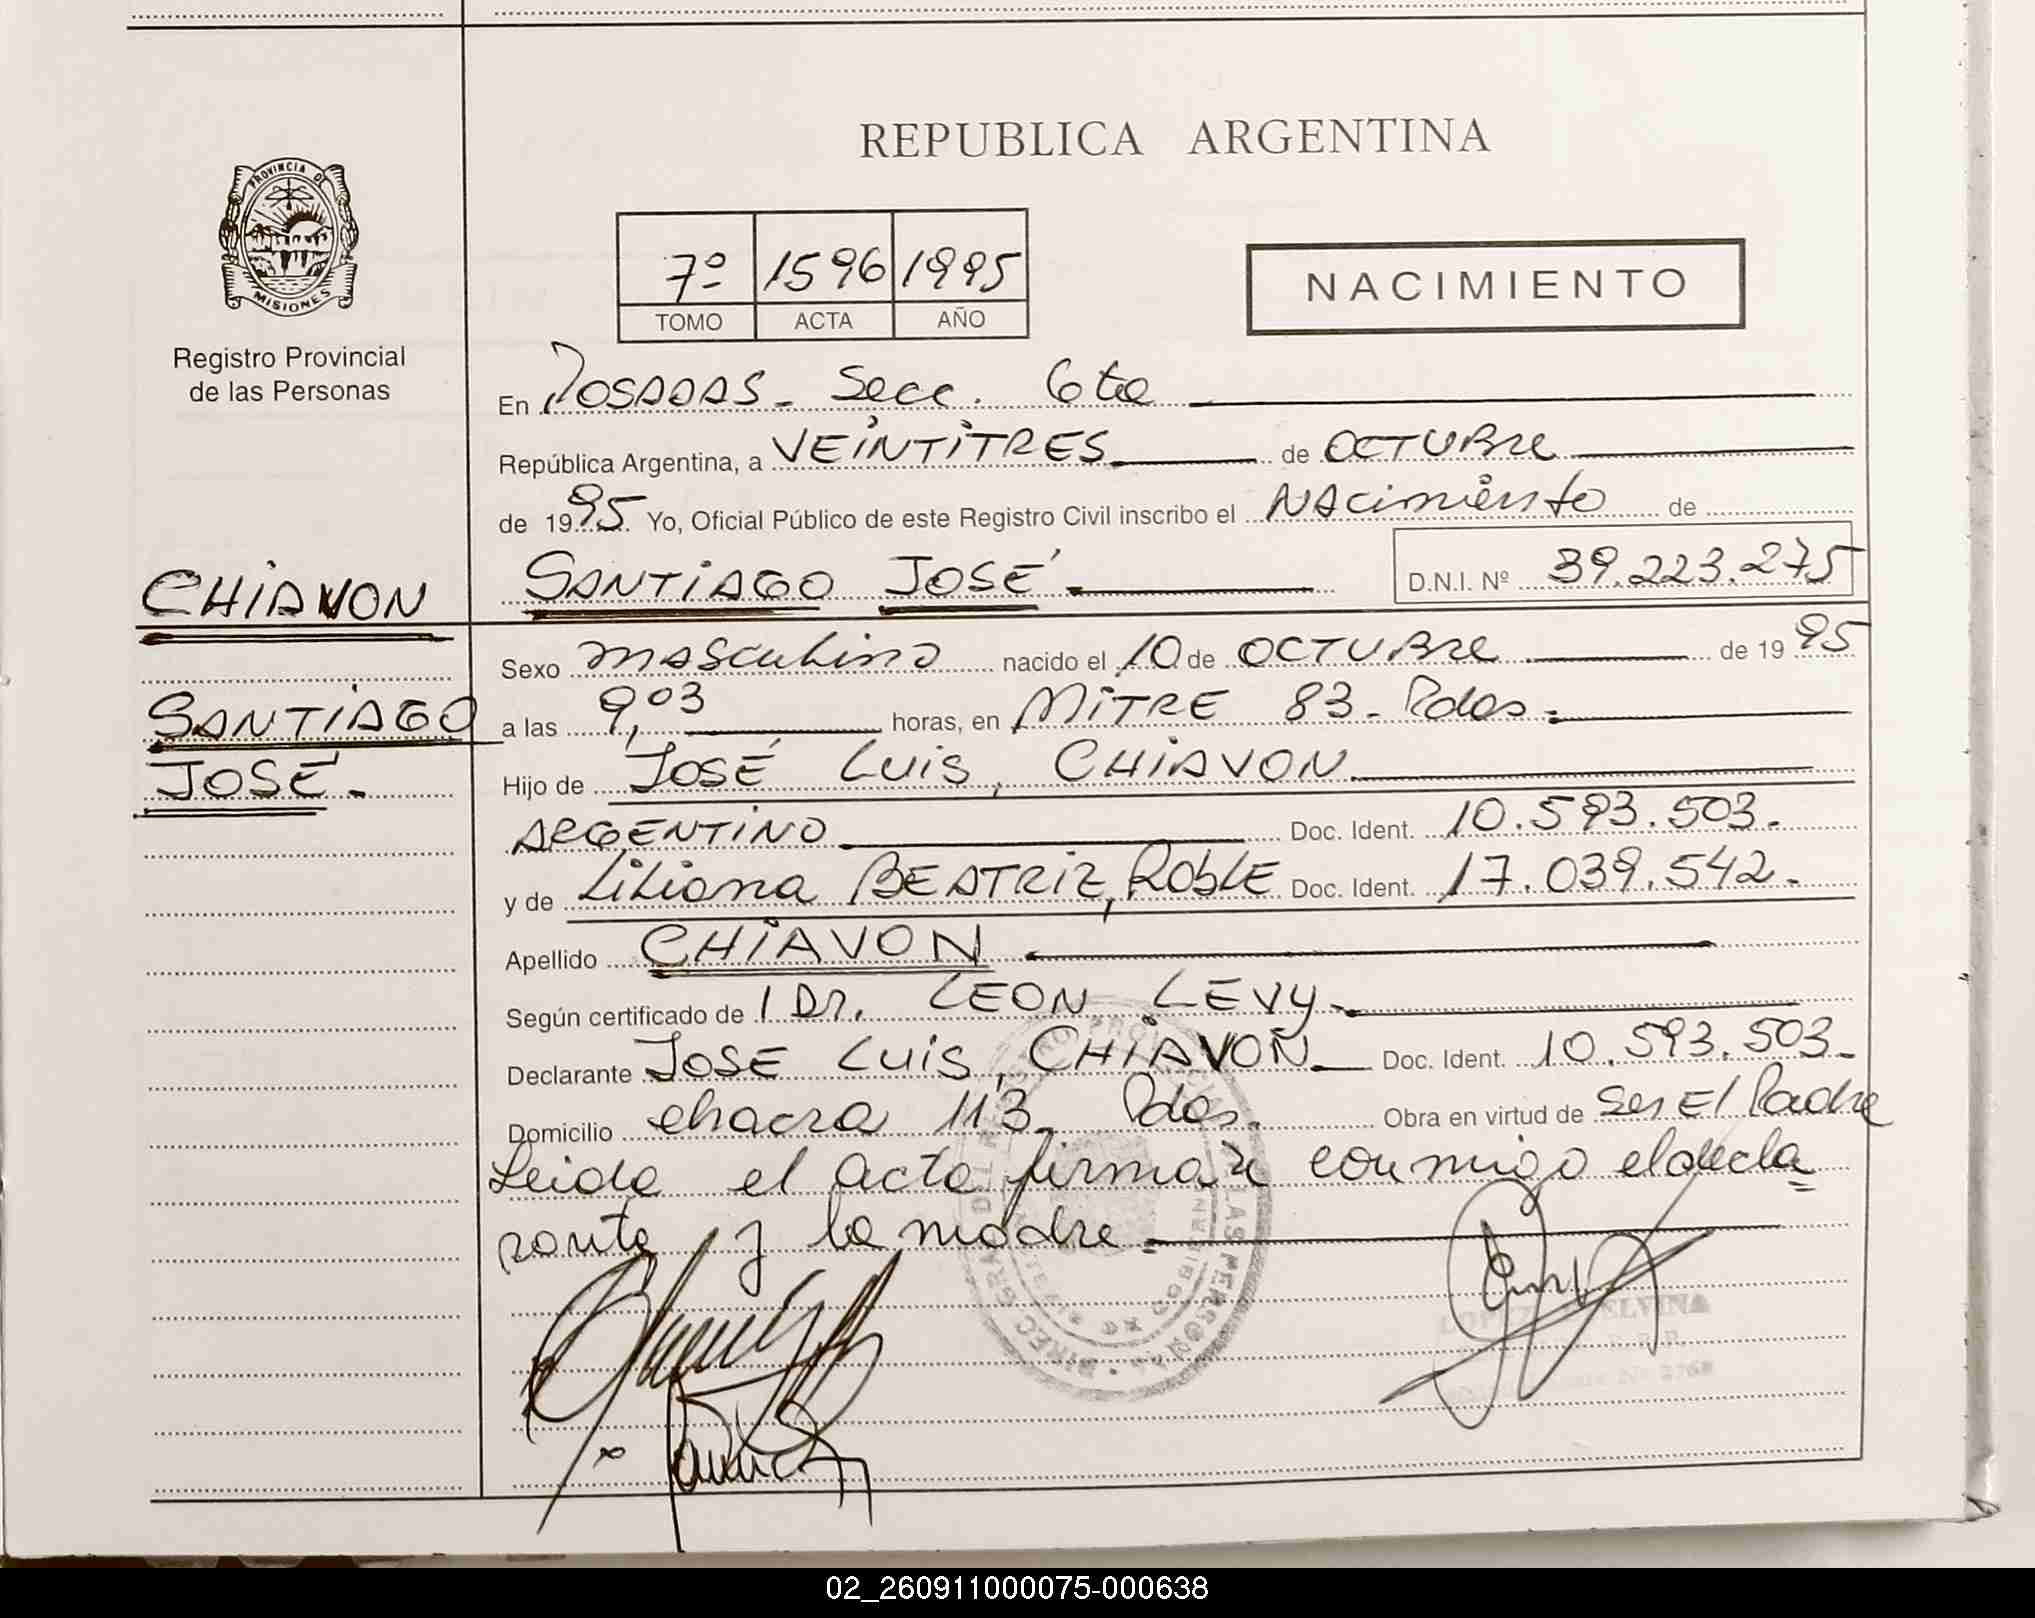 REPUBLICA ARGENTINA
PROVINCIA DE
MISIONES
Registro Provincial
de las Personas
7º 1596 1995
TOMO ACTA AÑO
NACIMIENTO
En POSADAS - Secc. 6ta
República Argentina, a VEINTITRES de OCTUBRE
de 1995. Yo, Oficial Público de este Registro Civil inscribo el NACimiento de
CHIAVON
SANTIAGO JOSÉ D.N.I. Nº 39.223.275
Sexo masculino nacido el 10 de OCTUBRE de 1995
SANTIAGO
a las 9,03 horas, en MITRE 83 - Pdas.
JOSÉ.-
Hijo de JOSÉ Luis, CHIAVON
ARGENTINO Doc. Ident. 10.593.503.-
y de Liliana BEATRIZ, ROBLE Doc. Ident. 17.039.542.-
Apellido CHIAVON
Según certificado de l Dr. LEON LEVY.-
Declarante JOSE Luis, CHIAVON Doc. Ident. 10.593.503.-
Domicilio chacra 113 - Pdas. Obra en virtud de Ser El Padre
Leida el acta firman conmigo el decla
rante y la madre.-
02_260911000075-000638